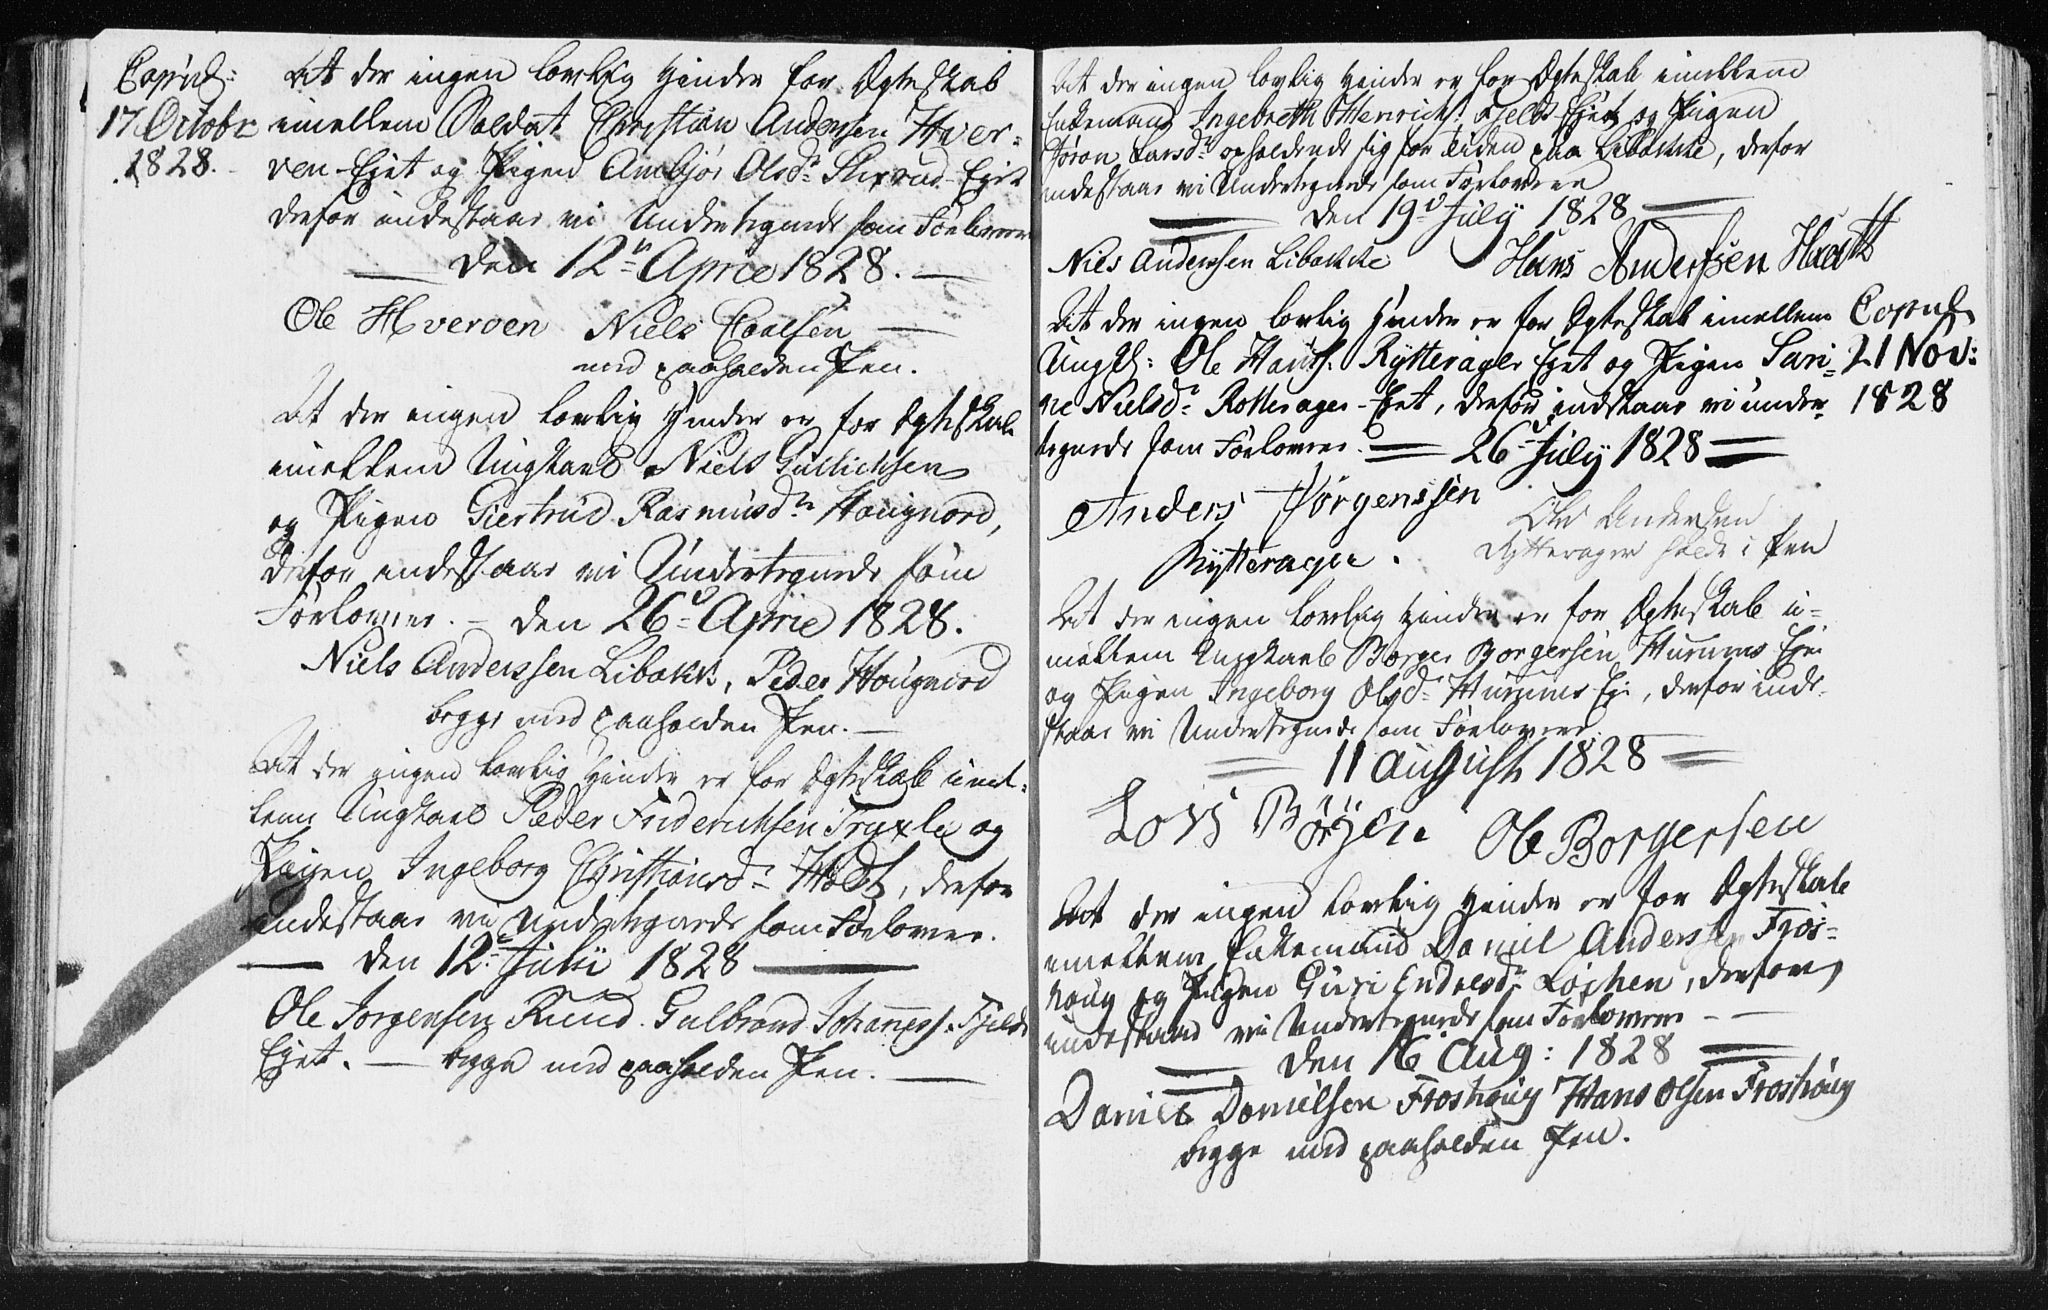 Copul:
17 Octobr
1828.
At der ingen lovlig Hinder for Ægteskab
imellem Soldat Christian Andersen Hver-
ven-Ejet og Pigen Anbjør Olsd:
derfor indestaar vi Undertegnede som Forlovere
den 12te April 1828.
Ole Hverven Niels Poulsen
med paaholden Pen.
At der ingen lovlig Hinder er for Ægteskab
imellem Ungkarl Niels Gullichsen
og Pigen Giertrud Rasmusdr Hougnord,
derfor indestaar vi Undertegnede som
Forlovere. - den 26de April 1828.
Niels Anderssen Libakke, Peder Hougnord
begge med paaholden Pen.
At der ingen lovlig Hinder er for Ægteskab imel-
lem Ungkarl Peder Friderichsen Tryxle og
Pigen Ingeborg Christiansdr Holdt, derfor
indestaar vi Undertegnede som Forlovere.
den 12te July 1828
Ole Jorgensen Ruud. Gulbrand Johanness: Fjelds
Ejet. - begge med paaholden Pen.
At der ingen lovlig Hinder er for Ægteskab imellem
Enkemand Ingebreth Henrichs: Fjelds Ejet og Pigen
Jøran Larsdr opholdende sig for Tiden paa Libakke, derfor
indestaar vi Undertegnede som Forlovere
den 19de July 1828
Niels Anderssen Libakke Hans Anderssen
At der ingen lovlig Hinder er for Ægteskab imellem
Ungk: Ole Hans: Rytterager Ejet og Pigen Sari-
ne Nielsdr Rotterager-Ejet, derfor indstaar vi under-
tegnede som Forlovere. 26de July 1828
Copul:
21 Nov:
1828
Anders Jørgenssen
Rytterager.
Ole Andersen
Rytterager holdt i Pen
At der ingen lovlig Hinder er for Ægteskab i-
mellem Ungkarl Borger Borgersen Hurums Eje
og Pigen Ingeborg Olsdr Hurums Eje, derfor inde-
staar vi Undertegnede som Forlovere.
11 August 1828
Lars Børgen Ole Borgersen
At der ingen lovlig Hinder er for Ægteskab
imellem Enkemand Daniel Anderssen Fros-
houg og Pigen Guri Endresdr Løchen, derfor
indestaar vi Undertegnede som Forlovere
den 16 Aug: 1828
Daniel Danielsen Froshoug Hans Olsen Froshoug
begge med paaholden Pen.